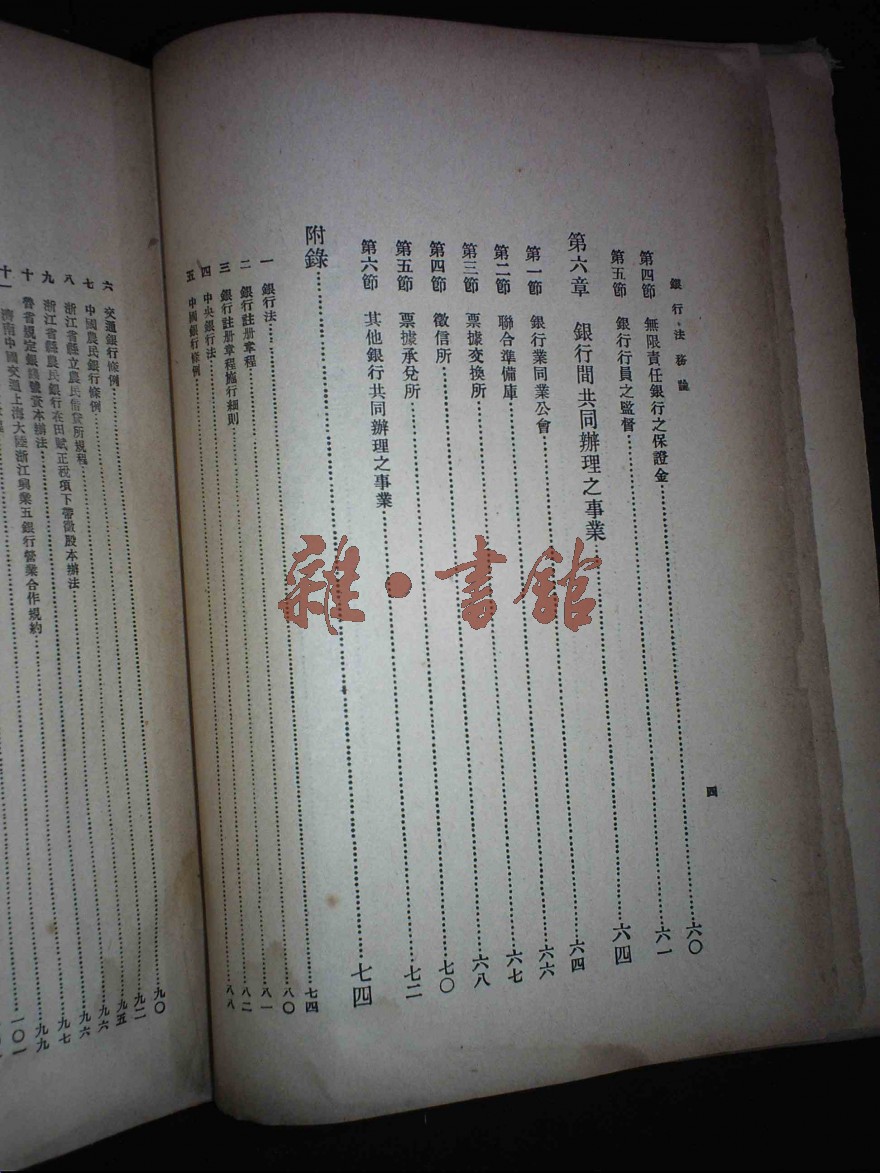 銀行法務論
四
第四節 無限責任銀行之保證金……六〇
第五節 銀行行員之監督……六一
第六章 銀行間共同辦理之事業……六四
第一節 銀行業同業公會……六四
第二節 聯合準備庫……六六
第三節 票據交換所……六七
第四節 徵信所……六八
第五節 票據承兌所……七〇
第六節 其他銀行共同辦理之事業……七二
附錄……七四
一 銀行法……七四
二 銀行註册章程……八〇
三 銀行註册章程施行細則……八一
四 中央銀行法……八二
五 中國銀行條例……八八
六 交通銀行條例……九〇
七 中國農民銀行條例……九二
八 浙江省縣立農民借貸所規程……九五
九 浙江省縣農民銀行在田賦正稅項下帶徵股本辦法……九六
十 魯省規定銀錢號資本辦法……九七
十一 濟南中國交通上海大陸浙江興業五銀行營業合作規約……九九
一〇一
雜·書館